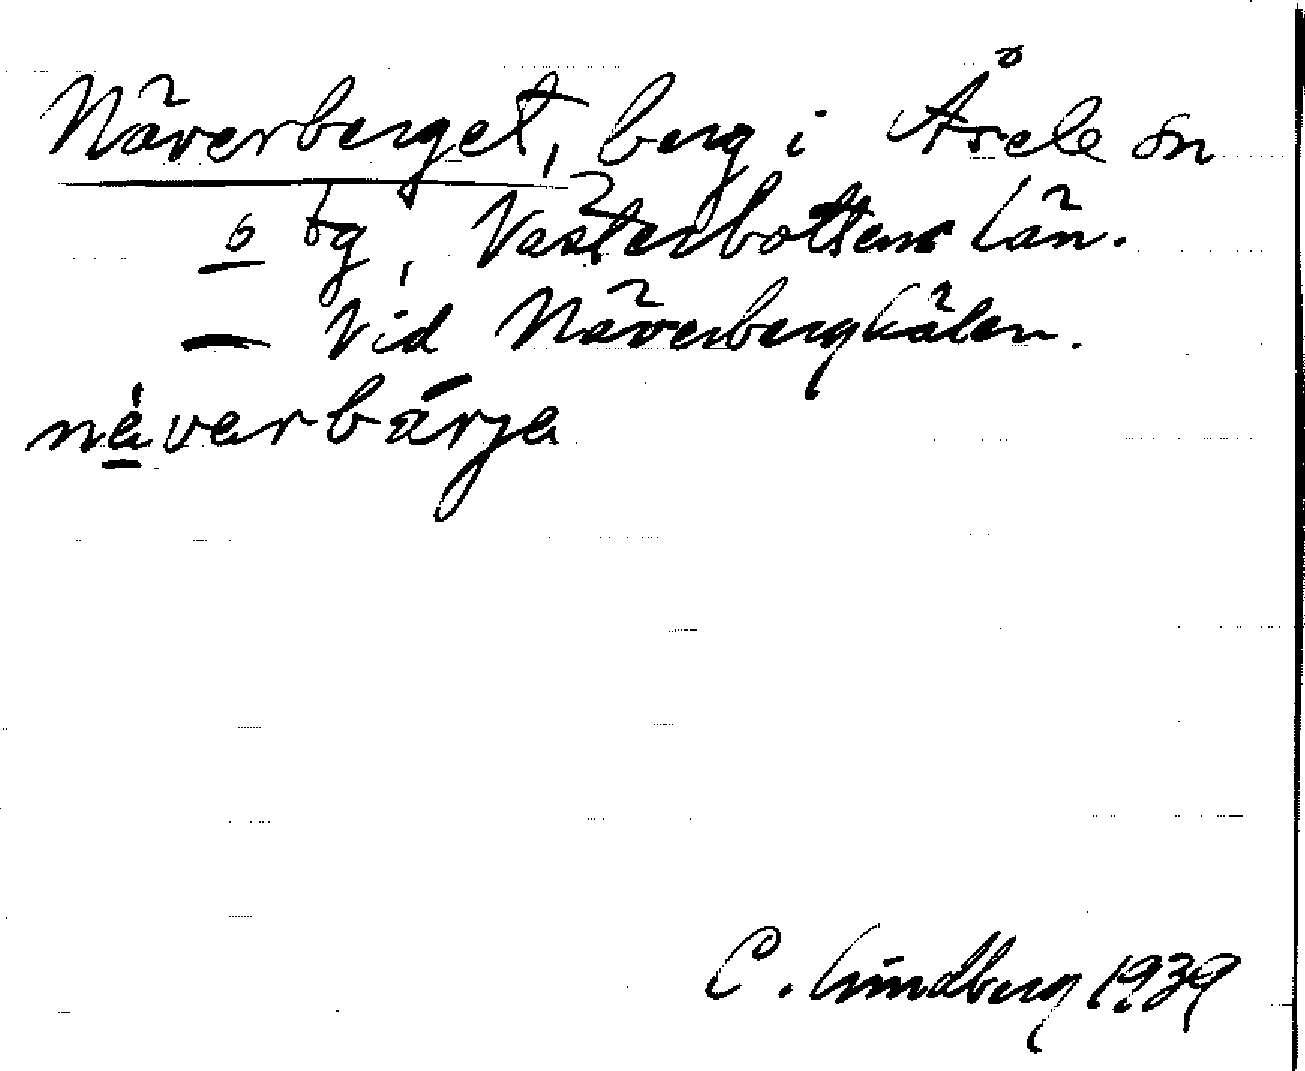 Näverberget, berg i Åsele sn
o tg, Västerbottens län.
— Vid Näverbergkälen.
nèverbärje
C. Lindberg 1939